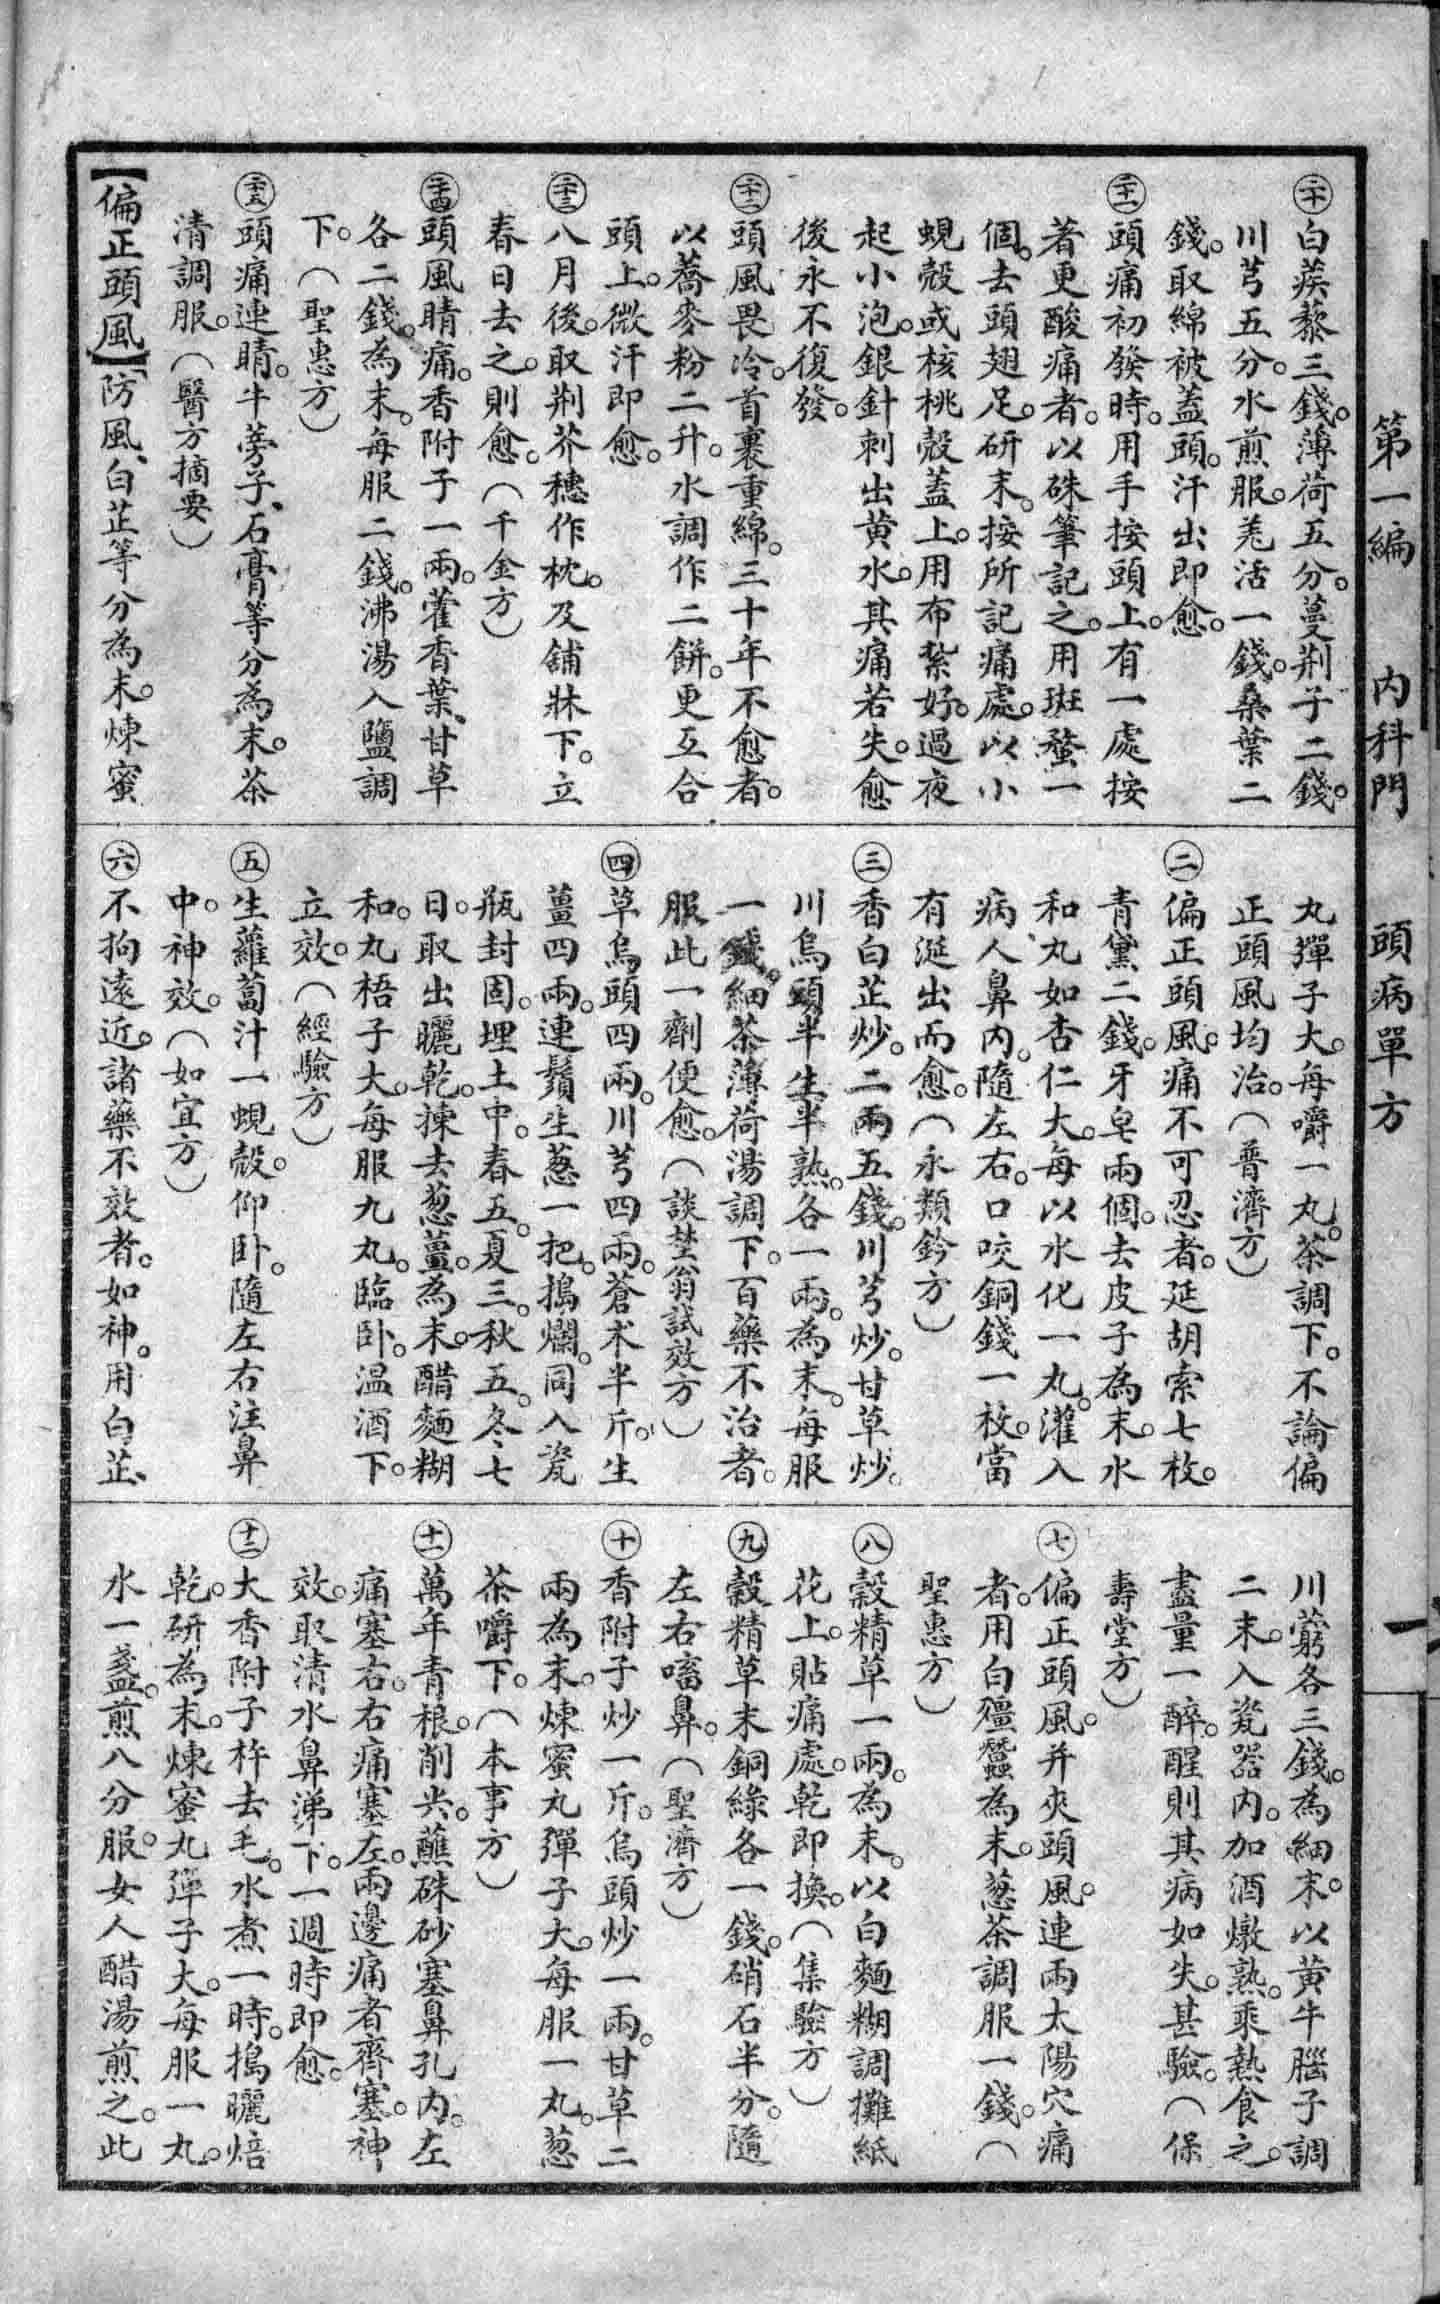 第一編　內科門　頭病單方　一
㊁十白蒺藜三錢。薄荷五分。蔓荆子二錢。
川芎五分。水煎服。羌活一錢。桑葉二
錢。取綿被蓋頭。汗出即愈。
二十一頭痛初發時。用手按頭上。有一處按
著更酸痛者。以硃筆記之。用斑蝥一
個。去頭翅足。研末。按所記痛處。以小
蜆殼或核桃殼蓋上。用布紮好。過夜
起小泡。銀針刺出黄水。其痛若失。愈
後永不復發。
二十二頭風畏冷。首裹重綿。三十年不愈者。
以蕎麥粉二升。水調作二餅。更互合
頭上。微汗即愈。
二十三八月後。取荆芥穗作枕。及鋪牀下。立
春日去之。則愈。（千金方）
二十四頭風睛痛。香附子一兩。藿香葉、甘草
各二錢。為末。每服二錢。沸湯入鹽調
下。（聖惠方）
二十五頭痛連睛。牛蒡子、石膏等分為末。茶
清調服。（醫方摘要）
【偏正頭風】防風、白芷等分為末。煉蜜
丸彈子大。每嚼一丸。茶調下。不論偏
正頭風均治。（普濟方）
㊁偏正頭風。痛不可忍者。延胡索七枚。
青黛二錢。牙皂兩個。去皮子為末。水
和丸如杏仁大。每以水化一丸。灌入
病人鼻內。隨左右。口咬銅錢一枚。當
有涎出而愈。（永類鈐方）
㊂香白芷炒。二兩五錢。川芎炒。甘草炒。
川烏頭半生半熟。各一兩。為末。每服
一錢。細茶薄荷湯調下。百藥不治者。
服此一劑便愈。（談埜翁試效方）
㊃草烏頭四兩。川芎四兩。蒼术半斤。生
薑四兩。連鬚生葱一把。搗爛。同入瓷
瓶封固。埋土中。春五。夏三。秋五。冬七
日。取出曬乾。揀去葱薑。為末。醋麵糊
和。丸梧子大。每服九丸。臨卧。温酒下。
立效。（經驗方）
㊄生蘿蔔汁一蜆殼。仰卧。隨左右注鼻
中。神效。（如宜方）
㊅不拘遠近。諸藥不效者。如神。用白芷、
川藭各三錢。為細末。以黄牛腦子調
二末。入瓷器內。加酒燉熟。乘熱食之。
盡量一醉。醒則其病如失。甚驗。（保
壽堂方）
㊆偏正頭風。并夾頭風。連兩太陽穴痛
者。用白殭蠶為末。葱茶調服一錢。（
聖惠方）
㊇穀精草一兩。為末。以白麵糊調攤紙
花上。貼痛處。乾即換。（集驗方）
㊈穀精草末銅綠各一錢。硝石半分。隨
左右㗜鼻。（聖濟方）
㊉香附子炒一斤。烏頭炒一兩。甘草二
兩為末。煉蜜丸彈子大。每服一丸。葱
茶嚼下。（本事方）
十一萬年青根。削尖。蘸硃砂塞鼻孔內。左
痛塞右。右痛塞左。兩邊痛者齊塞。神
效。取清水鼻涕下。一週時即愈。
十二大香附子杵去毛。水煮一時。搗曬焙
乾。研為末。煉蜜丸彈子大。每服一丸。
水一盞。煎八分。服。女人醋湯煎之。此